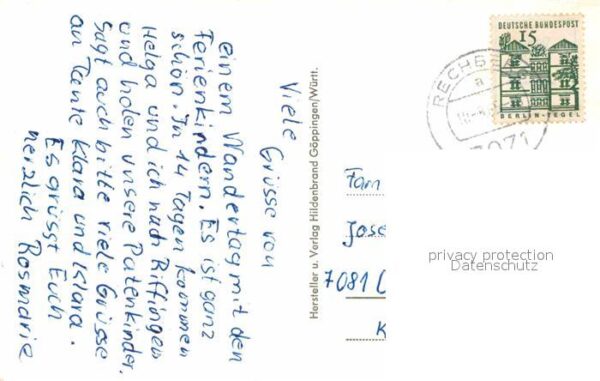 Viele
Grüsse von
einem Wandertag mit den
Ferienkindern. Es ist ganz
schön. In 14 Tagen kommen
Helga und ich nach Biffingen
und holen unsere Patenkinder.
Sagt auch bitte viele Grüsse
an Tante Klara und Klara.
Es grüsst Euch
herzlich Rosmarie
Hersteller u. Verlag Hildenbrand Göppingen/Württ.
DEUTSCHE BUNDESPOST
15
BERLIN-TEGEL
RECHB
a
7071
Fam
Jose
7081
K
privacy protection
Datenschutz